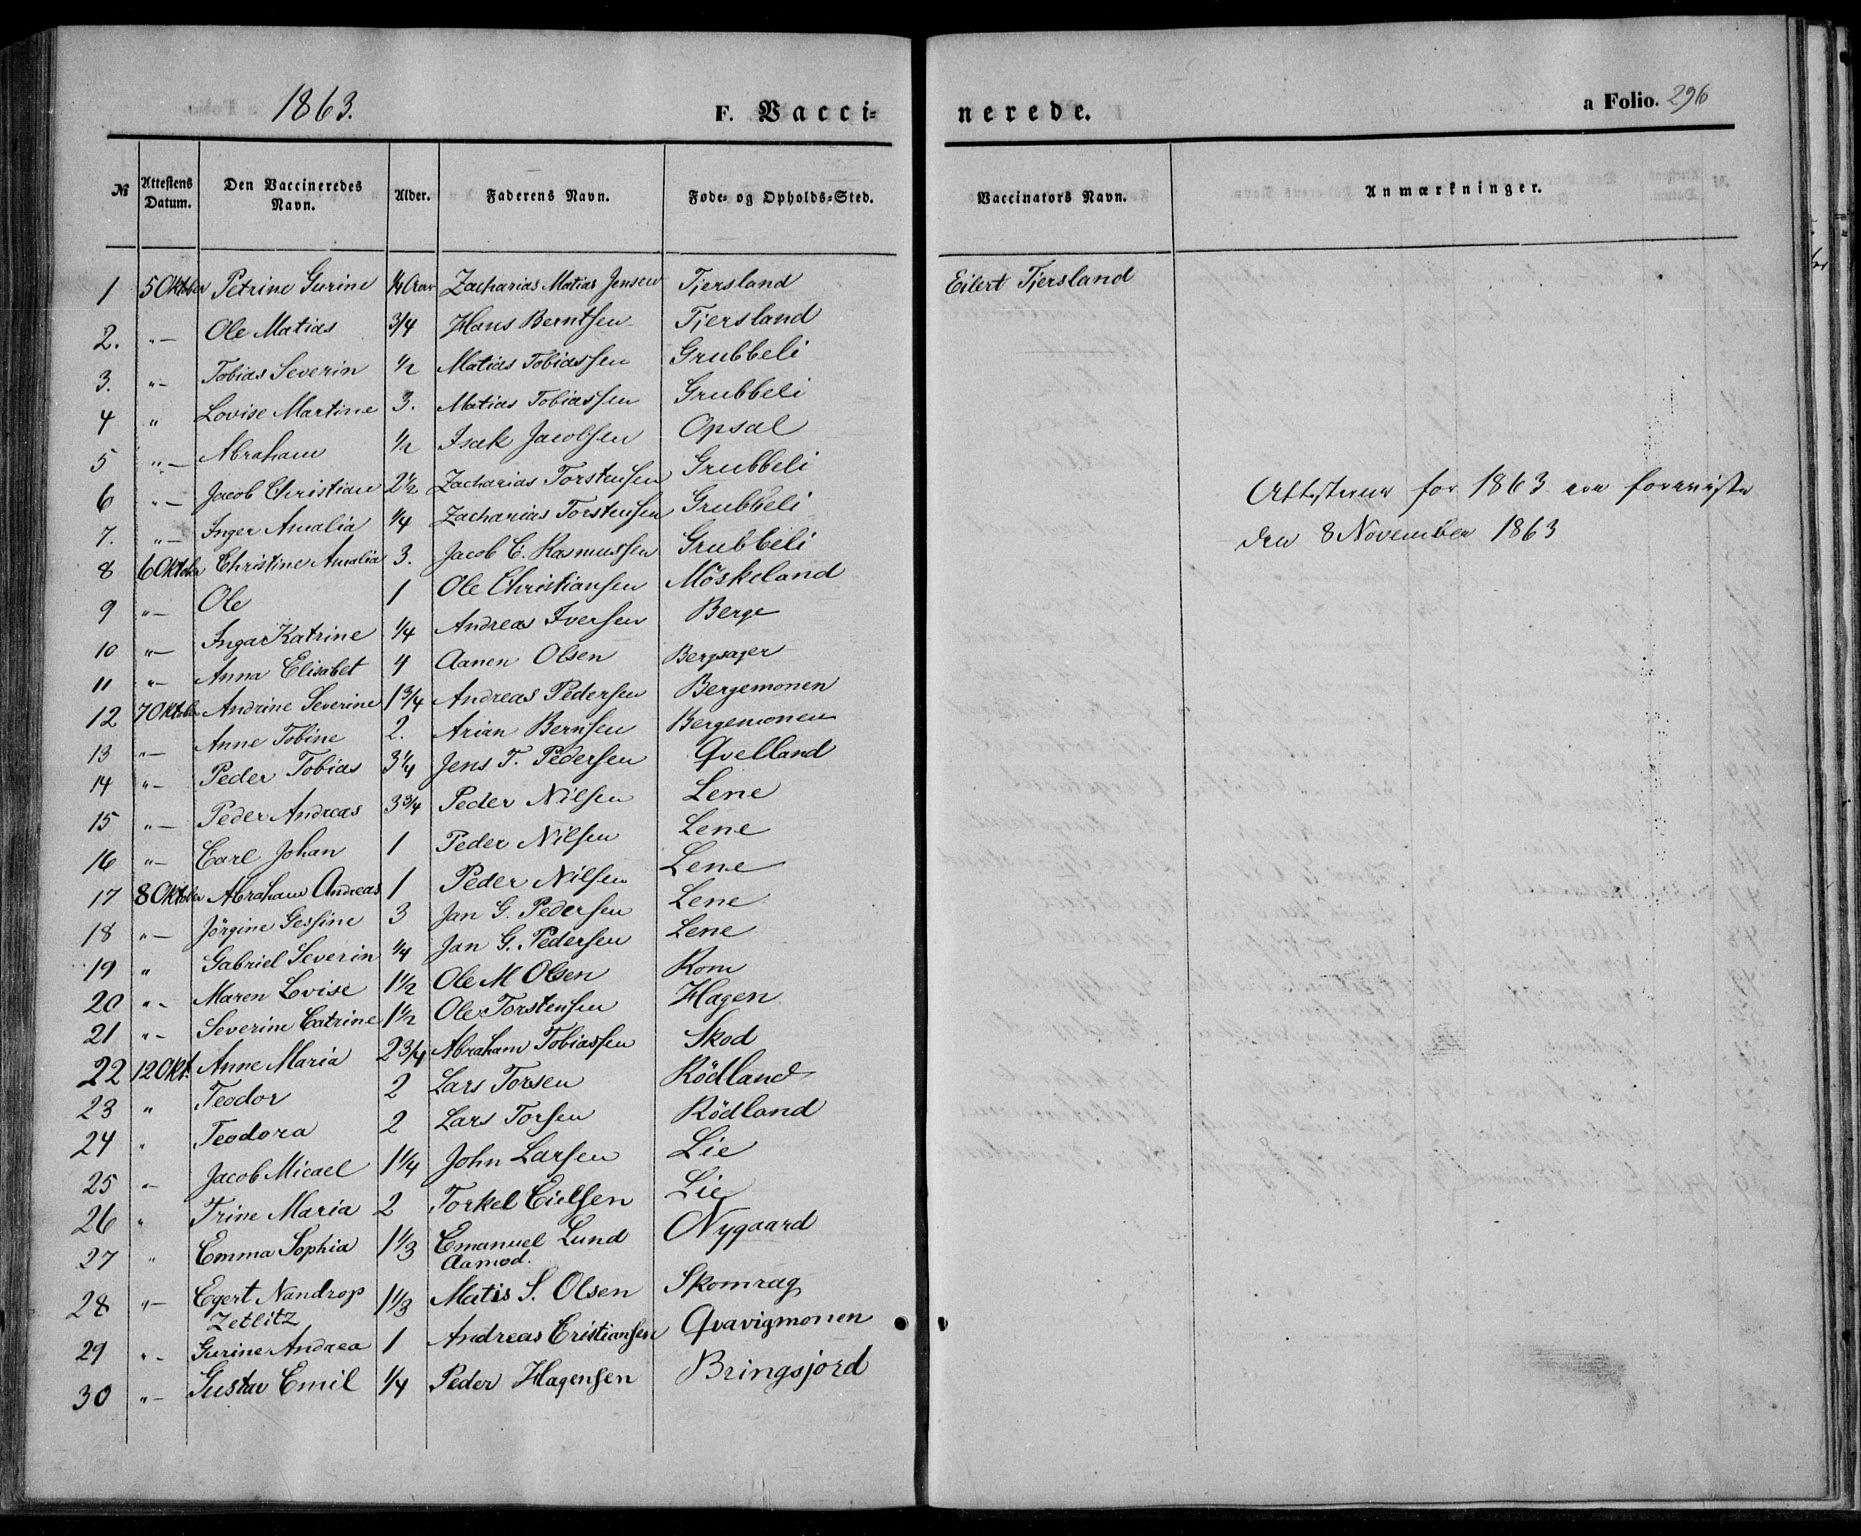 1863. F. Vacci= nerede. a Folio. 296
№ Attestens Datum. Den Vaccineredes Navn. Alder. Faderens Navn. Føde- og Opholds-Sted. Vaccinators Navn. Anmærkninger.
1 5 Oktober Petrine Gurine 1/4 Aar Zacharias Matias Jensen Tjersland Eilert Tjersland
2. "— Ole Matias 3/4 Hans Berntsen Tjersland
3. "— Tobias Severin 1/2 Matias Tobiassen Grubbeli
4 " Lovise Martine 3. Matias Tobiassen Grubbeli
5 "— Abraham 1/2 Isak Jacobsen Opsal
6 "— Jacob Christian 2 1/2 Zacharias Torstensen Grubbeli
7. "— Inger Amalia 1/4 Zacharias Torstensen Grubbeli
8 6 Oktober Christine Amalia 3. Jacob C. Rasmussen Grubbeli
9 "— Ole 1 Ole Christiansen Möskeland
10 "— Ingar Katrine 1/4 Andreas Iversen Berge
11 "— Anna Elisabet 4 Aanen Olsen Bergsager
12 7 Oktober Andrine Severine 1 3/4 Andreas Pedersen Bergemonen
13 "— Anne Tobine 2. Arian Bernsen Bergemonen
14 "— Peder Tobias 3 1/4 Jens T. Pedersen Qvelland
15 "— Peder Andreas 3 3/4 Peder Nilsen Lene
16 "— Carl Johan 1 Peder Nilsen Lene
17 8 Oktober Abraham Andreas 1 Peder Nilsen Lene
18 "— Jörgine Gessine 3 Jan G. Pedersen Lene
19 " Gabriel Severin 1/4 Jan G. Pedersen Lene
20 "— Maren Lovise 1 1/2 Ole M Olsen Rom
21 "— Severine Catrine 1 1/2 Ole Torstensen Hagen
22 12 Okt. Anne Maria 2 3/4 Abraham Tobiassen Skod
23 " Teodor 2 Lars Torsen Rödland
24 " Teodora 2 Lars Torsen Rödland
25 "— Jacob Micael 1 1/4 John Larsen Lie
26 " Trine Maria 2 Torkel Eielsen Lie
27 " Emma Sophia 1 1/3 Emanuel Lund Aamod. Nygaard
28 "— Egert Nandrop Zetlitz 1 1/3 Matis S. Olsen Skomrag
29 "— Gurine Andrea 1 Andreas Cristiansen Qvavigmonen
30 "— Gustav Emil 1/4 Peder Hagensen Bringsjord
Attesterne for 1863 ere foreviste
den 8 November 1863